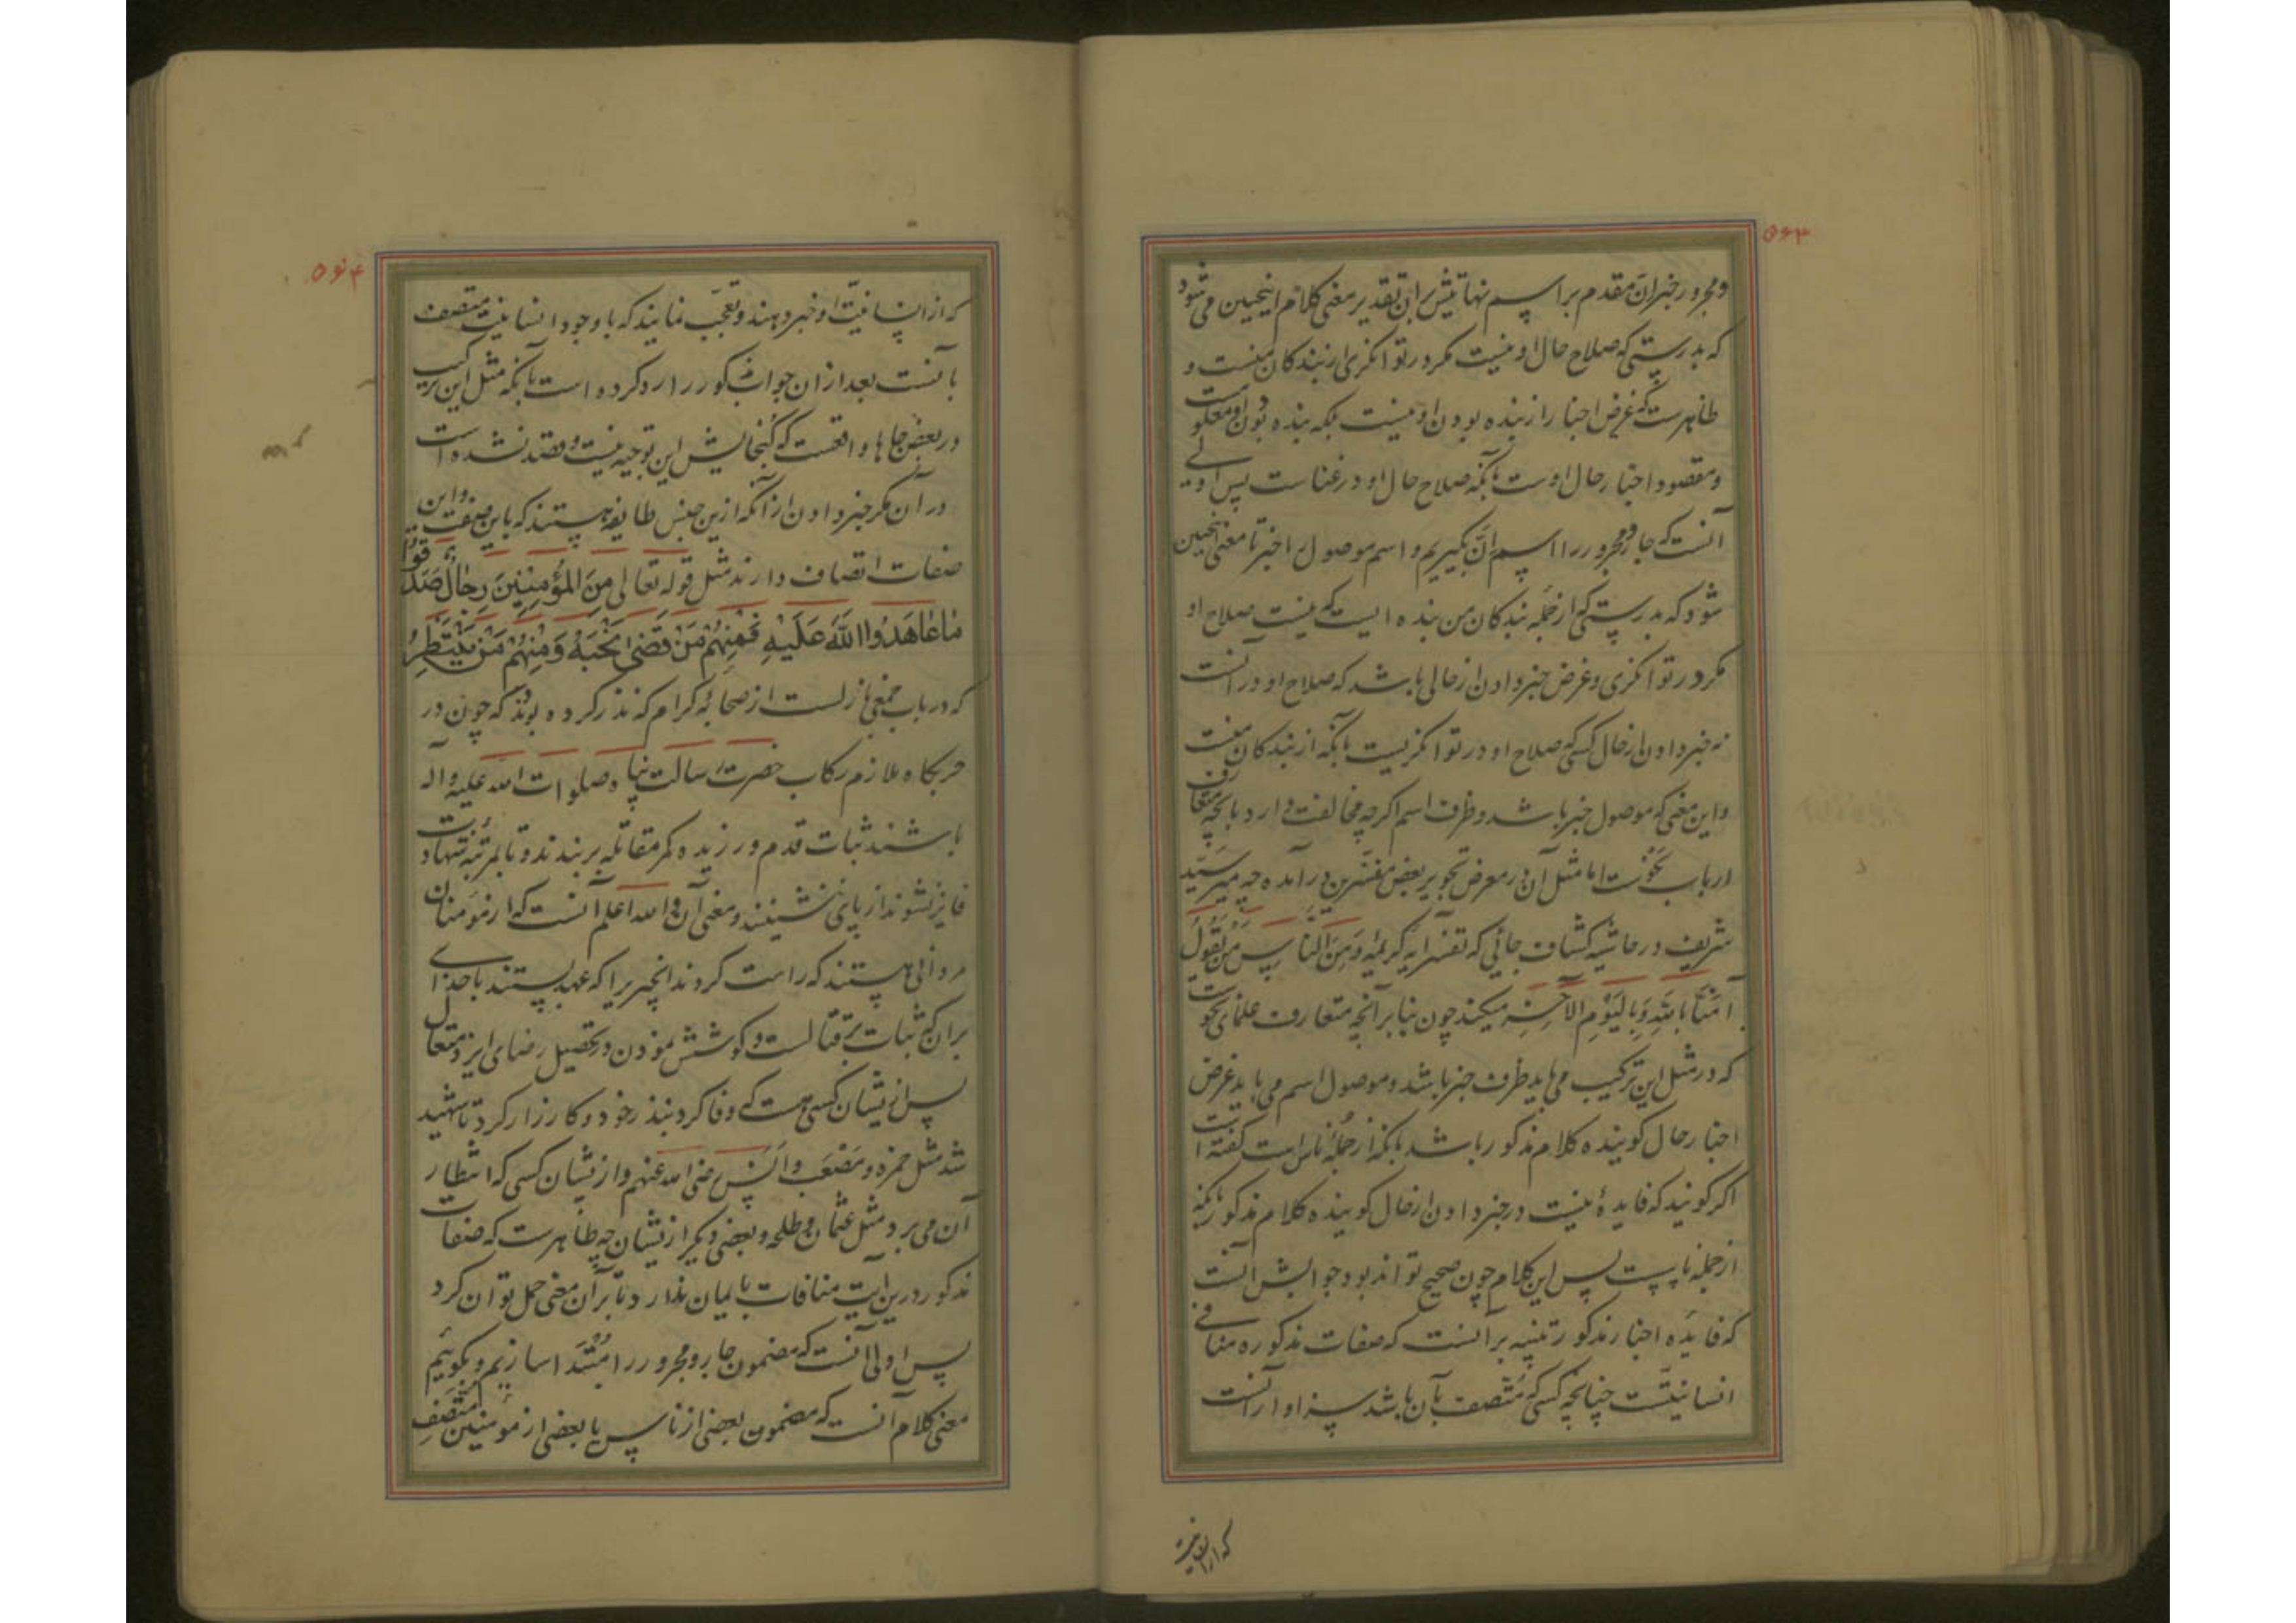 ۵۶۳
و مجرور خبر ان مقدم بر اسم نهایتش بر این تقدیر معنی کلام اینچنین می شود
که بدرستی که صلاح حال او نیست مکر در توانکری از بندکان منست و
ظاهرست که غرض اخبار از بنده بودن او نیست بلکه بنده بودن او معلومست
و مقصود اخبار حال اوست بآنکه صلاح حال او در غناست پس اولی
آنست که جار و مجرور را اسم انّ بکیریم و اسم موصول را خبر تا معنی اینچنین
شود که بدرستی که از جمله بندکان من بنده ایست که نیست صلاح او
مکر در توانکری و غرض خبر دادن از حالی باشد که صلاح او در آنست
نه خبر دادن از حال کسی که صلاح او در توانکریست بآنکه از بندکان منست
و این معنی که موصول خبر باشد و ظرف اسم اکرچه مخالفت دارد بآنچه متعارف
ارباب نحوست اما مثل آن در معرض تجویز بعض مفسرین در آمده چه میر سید
شریف در حاشیه کشاف جائی که تفسیر آیه کریمه وَمِنَ النَّاسِ مَن یَقُولُ
آمَنَّا بِاللهِ وَبِالیَوْمِ الآخِرِ میکند چون بنابر آنچه متعارف علمای نحوست
که در مثل این ترکیب می باید ظرف خبر باشد و موصول اسم می باید غرض
اخبار حال کوینده کلام مذکور باشد بآنکه از جمله ناس است کفته است
اکر کویند که فایدهٔ نیست در خبر دادن از حال کوینده کلام مذکور بآنکه
از جمله ناسست پس این کلام چون صحیح تواند بود جوابش آنست
که فایده اخبار مذکور تنبیه بر آنست که صفات مذکوره منافی
انسانیّتست چنانچه کسی که متّصف بآن باشد سزاوار آنست
که از انسانیت
۵۶۴
که از انسانیّت او خبر دهند و تعجّب نمایند که با وجود انسانیت متصف
بآنست بعد از آن جواب مذکور را رد کرده است بآنکه مثل این ترکیب
در بعض جاها واقعست که کنجایش این توجیه نیست و قصد نشده است
در آن مکر خبر دادن از آنکه ازین جنس طایفه هستند که باین صفت و این
صفات اتصاف دارند مثل قوله تعالی مِنَ المُؤمِنِینَ رِجَالٌ صَدَقُوا
مَا عَاهَدُوا اللهَ عَلَیهِ فَمِنهُم مَّن قَضَی نَحبَهُ وَمِنهُم مَّن یَنتَظِرُ
که در باب جمعی نازلست از صحابه کرام که نذر کرده بودند که چون در
حربکاه ملازم رکاب حضرت رسالت پناه صلوات الله علیه و آله
باشند ثبات قدم ورزیده کمر مقاتله بربندند و تا بمرتبه شهادت
فایز نشوند از پای ننشینند و معنی آن والله اعلم آنست که از مؤمنان
مردانی هستند که راست کردند آنچیزیرا که عهد بستند با خدای
بر آن که ثبات بر قتالست و کوشش نمودن در تحصیل رضای ایزد متعال
پس از یشان کسی هست که وفا کرد بنذر خود و کارزار کرد تا شهید
شد مثل حمزه و مصعب و انس رضی الله عنهم و از یشان کسی که انتظار
آن می برد مثل عثمان و طلحه و بعضی دیکر از یشان چه ظاهرست که صفات
مذکور درین آیت منافات بایمان ندارد تا بر آن معنی حمل توان کرد
پس اولی آنست که مضمون جار و مجرور را مُبتَدا سازیم و بکوئیم
معنی کلام آنست که مضمون بعضی از ناس یا بعضی از مؤمنین متّصفِ